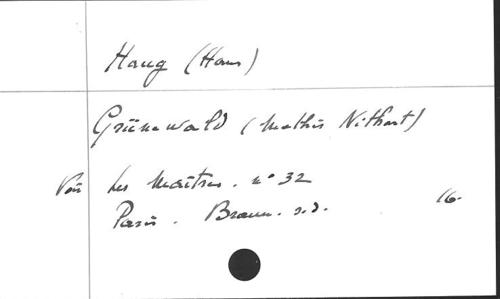 Haug (Hans)
Grünewald (Mathis Nithart)
Voir Les Maîtres. n° 32
Paris. Braun. s.d. 16.